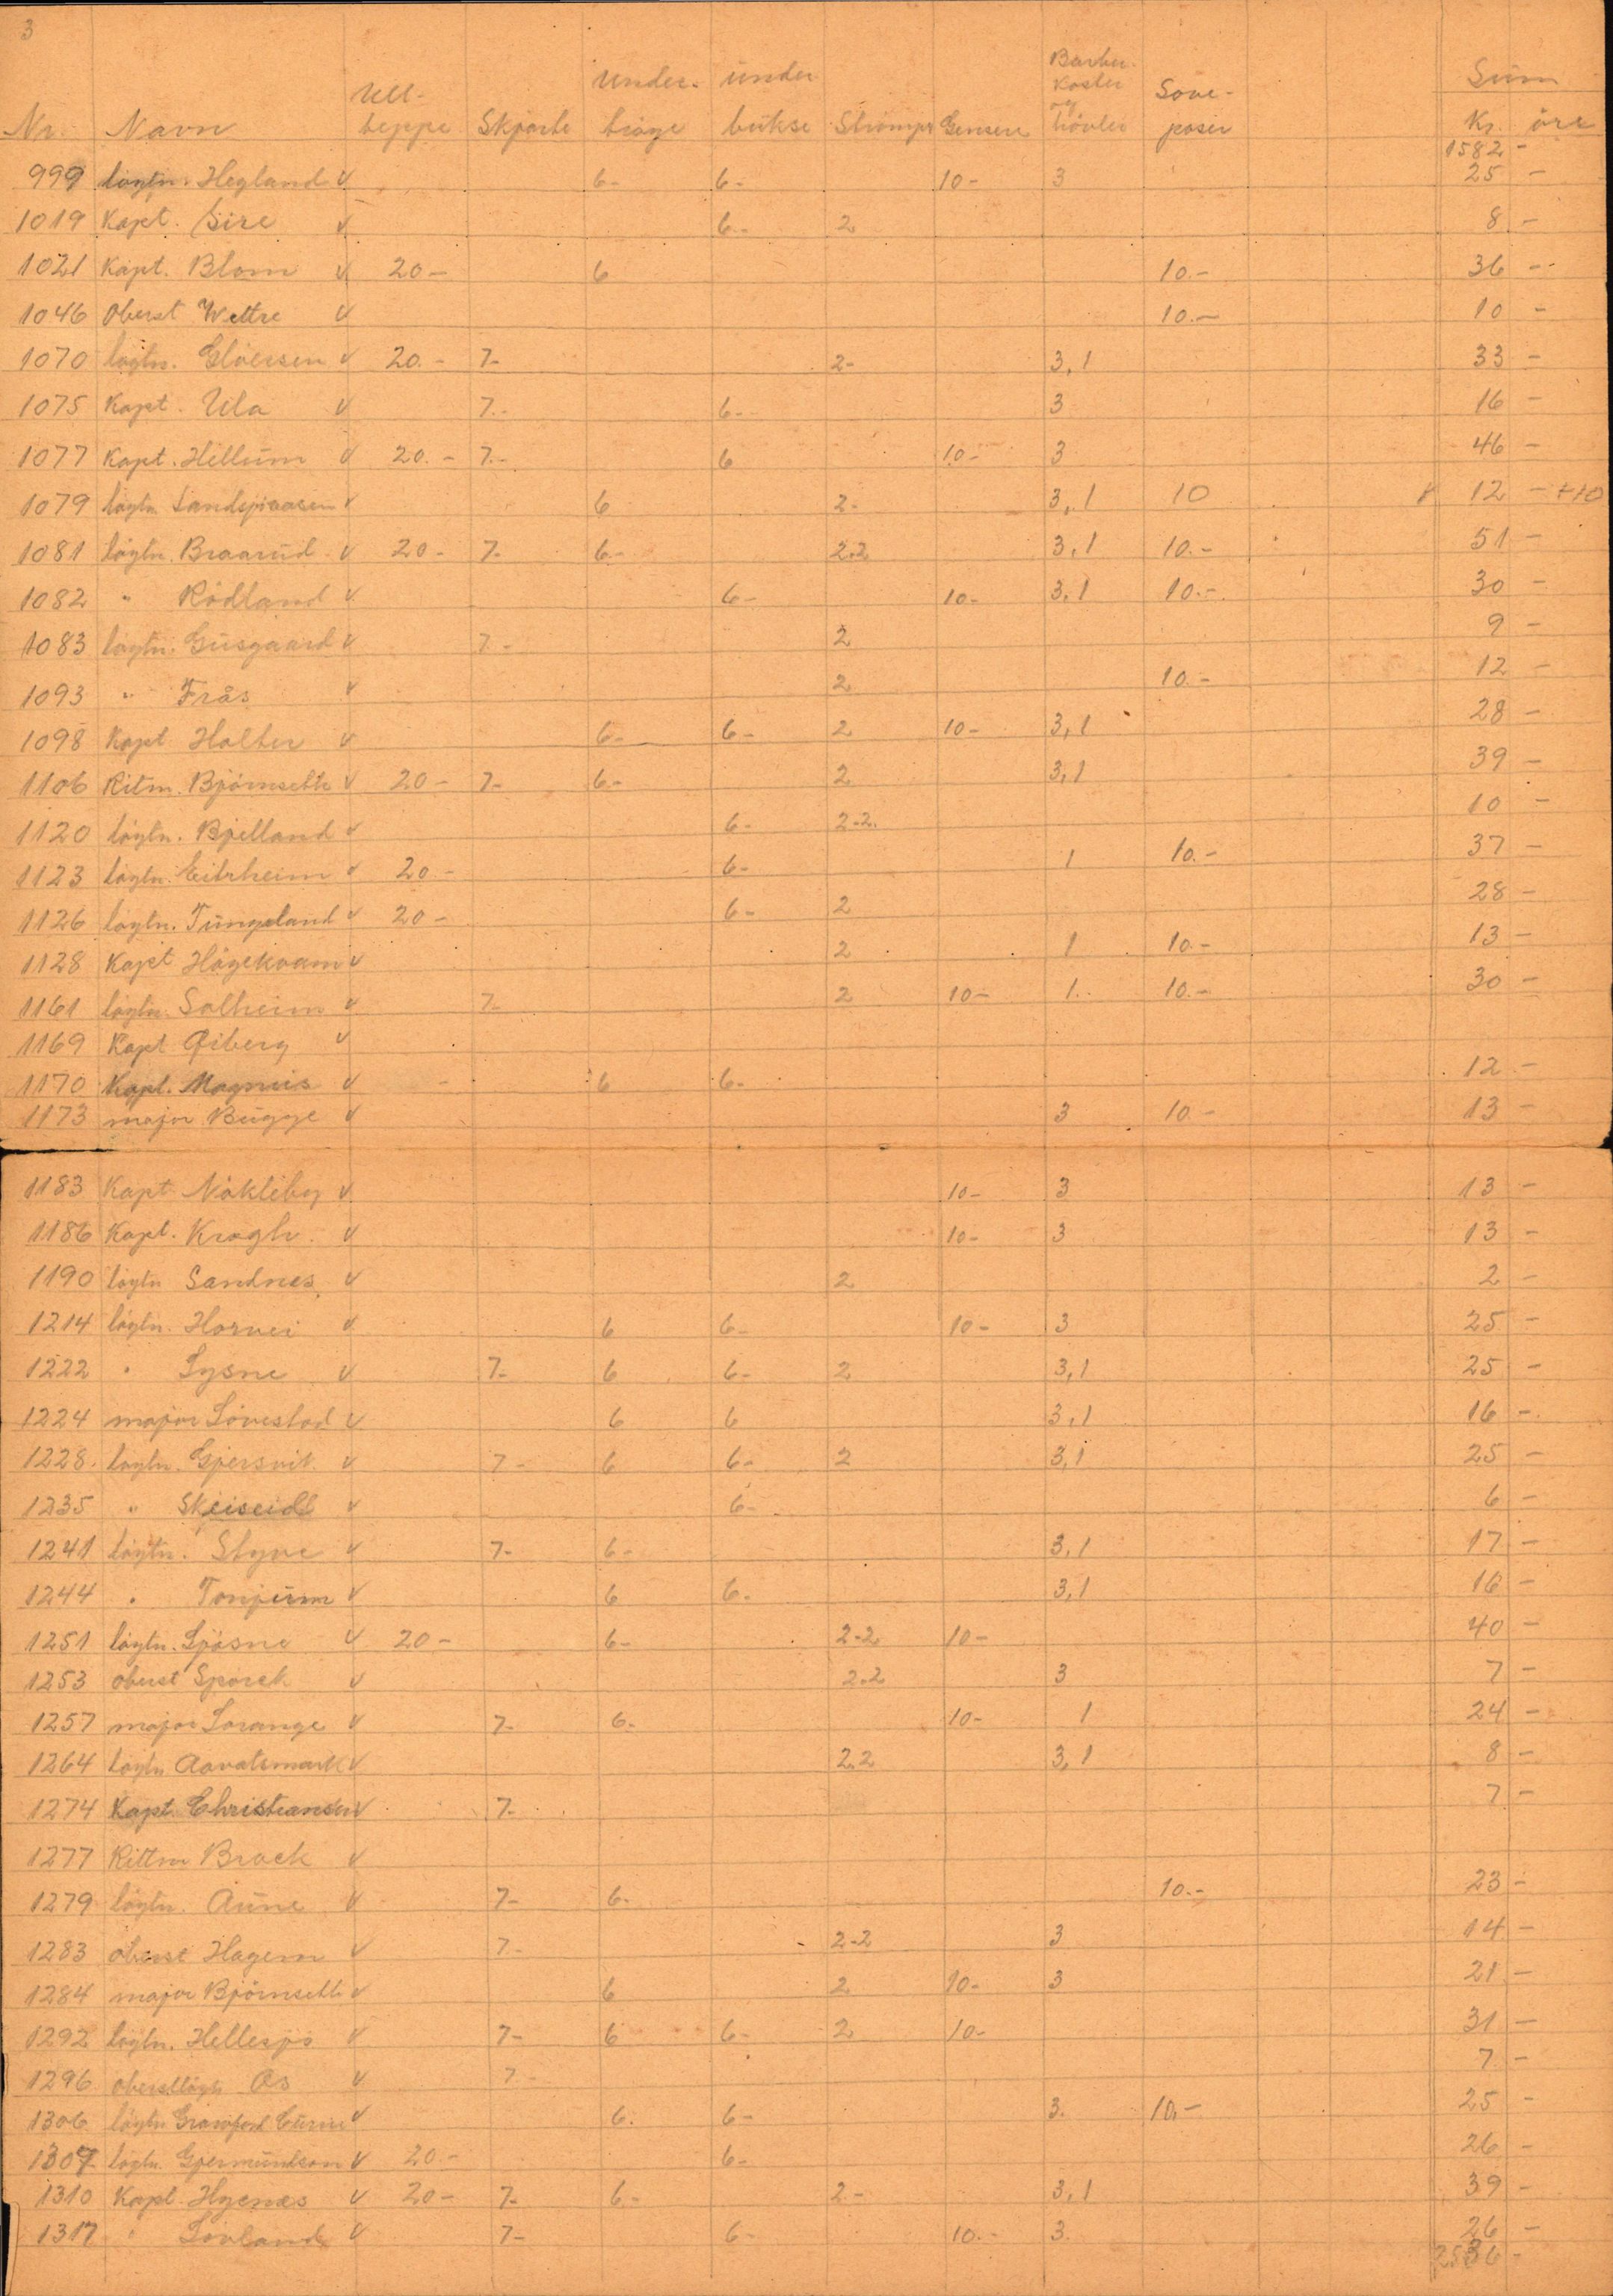 3
Nr. Navn Ull-teppe Skjorte Under-tröye Under bukse Strömper Gensere Barber-koster og hövler Sove-poser Sum Kr. öre
1582 -
999 löytn. Hegland v 6- 6- 10- 3 25 -
1019 Kapt. Sire v 6- 2 8 -
1021 Kapt. Blom v 20- 6 10.- 36 -
1046 Oberst Wettre v 10.- 10 -
1070 löytn. Glöersen v 20.- 7- 2- 3,1 33 -
1075 Kapt. Ula v 7.- 6- 3 16 -
1077 Kapt. Hellum v 20.- 7.- 6 10- 3 46 -
1079 löytn. v 6 2- 3,1 10 12 - +10
1081 löytn. Braarud v 20- 7- 6- 2-2 3,1 10.- 51 -
1082 " Rödland v 6- 10- 3,1 10.- 30 -
1083 löytn. Gusgaard v 7- 2 9 -
1093 " Frås v 2 10.- 12 -
1098 Kapt Holter v 6- 6- 2 10- 3,1 28 -
1106 Ritm. Björnseth v 20- 7- 6- 2 3,1 39 -
1120 löytn. Bjelland v 6- 2-2. 10 -
1123 löytn. Eitrheim v 20- 6- 1 10.- 37 -
1126 löytn. Tungeland v 20- 6- 2 28 -
1128 Kapt Högekvam v 2 1 10.- 13 -
1161 löytn. Solheim v 7- 2 10- 1. 10.- 30 -
1169 Kapt Qiberg v
1170 Kapt. Magnus v 6 6- 12 -
1173 major Bugge v 3 10- 13 -
1183 Kapt Nökleby v 10- 3 13 -
1186 Kapt. Krogh. v 10- 3 13 -
1190 löytn Sandnes v 2 2 -
1214 löytn. Hornei v 6 6- 10- 3 25 -
1222 " Lysne v 7- 6 6- 2 3,1 25 -
1224 major Lövestad v 6 6 3,1 16 -
1228. löytn. Gjersvik. v 7- 6 6- 2 3,1 25 -
1235 " Skeiseid v 6- 6 -
1241 löytn. Styve v 7- 6- 3,1 17 -
1244 " Tonjum v 6 6- 3,1 16 -
1251 löytn. Sjösne v 20- 6- 2-2 10- 40 -
1253 oberst Sporck v 2.2 3 7 -
1257 major Lorange v 7- 6- 10- 1 24 -
1264 löytn Aavatsmark v 2.2 3,1 8 -
1274 Kapt. Christiansen v 7- 7 -
1277 Rittm Brock v
1279 löytn. Aune v 7- 6- 10.- 23 -
1283 oberst Hagem v 7- 2-2 3 14 -
1284 major Björnseth v 6 2 10- 3 21 -
1292 löytn. Hellesjö v 7- 6 6- 2 10- 31 -
1296 oberstlöytn As v 7- 7 -
1306 löytn. Crawfurd Currie v 6. 6- 3. 10.- 25 -
1307 löytn. Gjermundson v 20.- 6- 26 -
1310 Kapt. Hyenæs v 20- 7- 6- 2.- 3,1 39 -
1317 " Lovland v 7- 6- 10.- 3. 26 -
2536 -